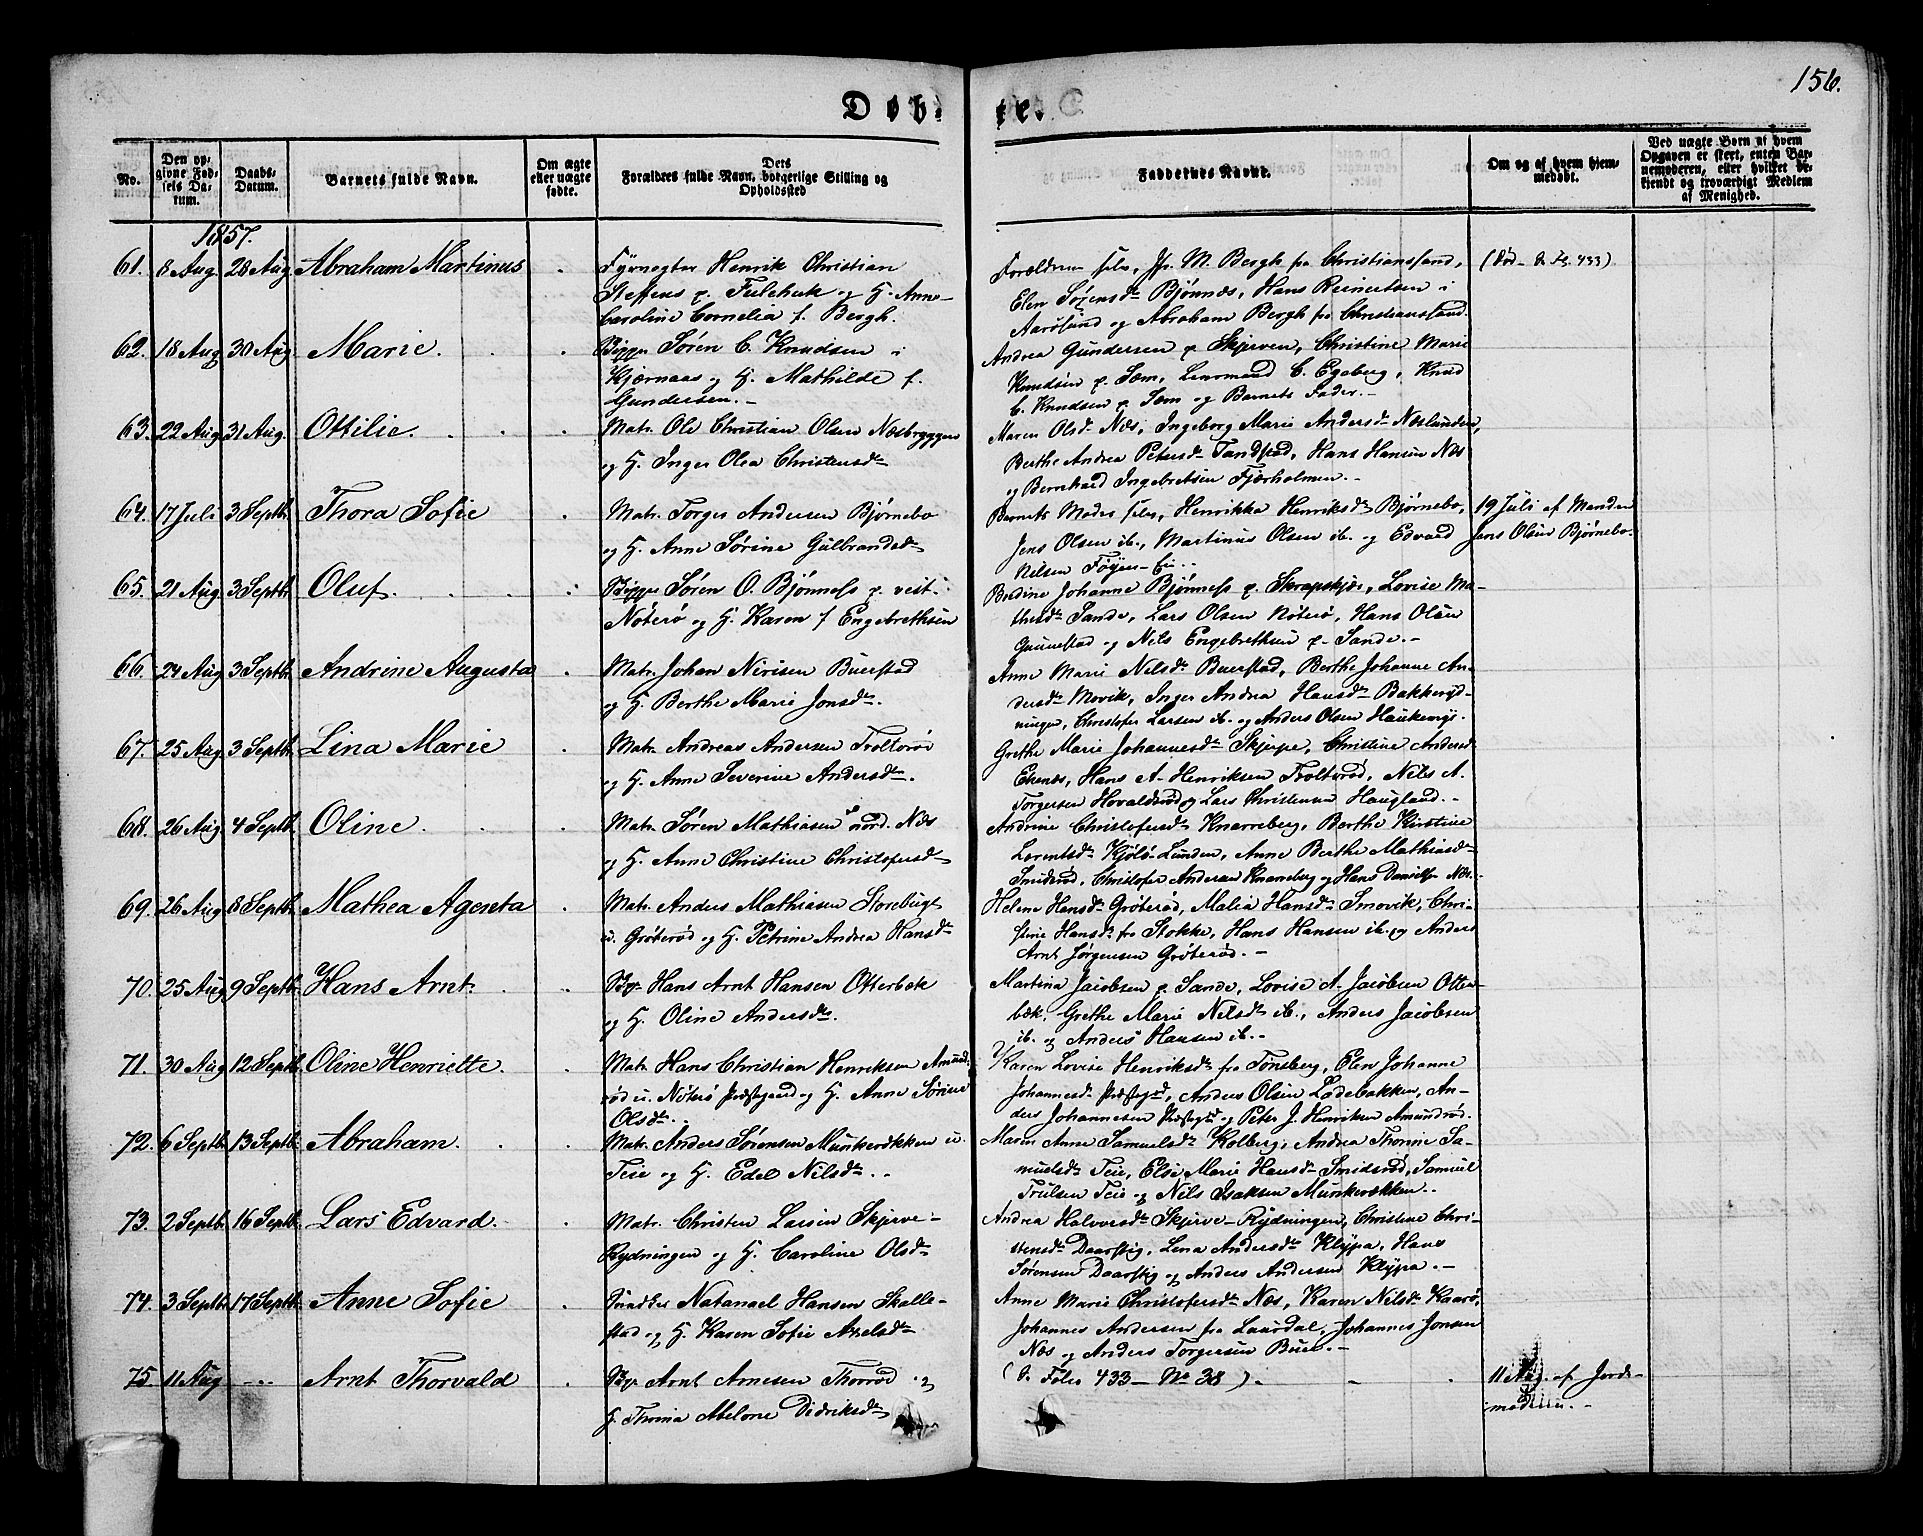 156.
Døbte.
No.
Den opgivne Fødsels Datum.
Daabs-Datum.
Barnets fulde Navn.
Om ægte eller uægte fødte.
Forældres fulde Navn, borgerlige Stilling og Dets Opholdssted
Faddernes Navne.
Om og af hvem hjemmedøbt.
Ved uægte Børn af hvem Opgaven er skeet, enten Barnemoderen, eller hvilket bekjendt og troværdigt Medlem af Menighed.
1857.
61. 8 Aug 28 Aug Abraham Martinus
Fyrvogter Henrik Christian
Steffens p. Fulehuk og H. Anne
Caroline Cornelia f. Bergh.
Forældrene selv, Jfr. M. Bergh fra Christianssand,
Elen Sørensdr Bjønnæs, Hans Reinertsen i
Aarøsund og Abraham Bergh fra Christianssand.
62. 18 Aug 30 Aug Marie.
Bygger Søren C. Knudsen i
Kjærnaas og H. Mathilde f.
Gundersen.-
Andrea Gundersen p. Skjerven, Christine Marie
Knudsen p. Sem, Lensmand C. Egeberg, Knud
C. Knudsen p. Sem og Barnets Fader.-
63. 22 Aug 31 Aug. Ottilie.
Matr. Ole Christian Olsen Næsbryggen
og H. Inger Olea Christensdr
Maren Olsdr Næs, Ingeborg Marie Andersdr Næslunden,
Berthe Andrea Petersdr Tandstad, Hans Hansen Næs
og Bernhard Ingebretsen Fjærholmen.-
64. 17 Juli 3 Septbr. Thora Sofie
Matr. Torger Andersen Bjørnebo
og H. Anne Sørine Gulbrandsdr
Barnets Moder selv, Henrikka Henriksdr Bjørnebo,
Jens Olsen ib., Martinus Olsen ib. og Edvard
Nilsen Føyen
19 Juli af Manden
Jens Olsen Bjørnebo.
65. 21 Aug 3 Septbr. Oluf.
Bygger Søren O. Bjønness p. vest.
Nøterø og H. Karen f Engebrethsen
Bodine Johanne Bjønness p. Skrapskjær, Lovise Mathisdr
Sande, Lars Olsen Nøterø, Hans Olsen
Gunnestad og Nils Engebrethsen p. Sande.-
66. 24 Aug 3 Septbr. Andrine Augusta
Matr. Johan Nirisen Buerstad
og H. Berthe Marie Jonsdr.
Anne Marie Nilsdr Buerstad, Berthe Johanne Andersdr
Movik, Inger Andrea Hansdr Bakkerydningen,
Christofer Larsen ib. og Anders Olsen
67. 25 Aug. 3 Septbr. Lina Marie
Matr. Andreas Andersen Toltorød
og H. Anne Severine Andersdr.
Grethe Marie Johannesdr Skjerpe, Christine Andersdr
Ekenæs, Hans A. Henriksen Toltorød, Nils A.
Torgersen Hovaldsrød og Lars Christensen Haugland.-
68. 26 Aug 4 Septbr. Oline.
Matr. Søren Mathiasen nord. Næs
og H. Anne Christine Christofersdr
Andrine Christofersdr Knarreberg, Berthe Kirstine
Lorentsdr Kjølø-Lunden, Anne Berthe Mathiasdr
Smidsrød, Christofer Andersen Knarreberg og Hans Danielsen Næs.-
69. 26 Aug 8 Septbr. Mathea Agenta
Matr. Anders Mathiasen Storebugt
u. Grøterød og H. Petrine Andrea Hansdr
Helene Hansdr Grøterød, Malia Hansdr Smovik, Christine
Hansdr fra Stokke, Hans Hansen ib. og Anders
Arnt Jørgensen Grøterød.-
70. 25 Aug 9 Septbr. Hans Arnt.
Bgr. Hans Arnt Hansen Otterbæk
og H. Oline Andersdr.
Martina Jacobsen p. Sande, Lovise A. Jacobsen Otterbæk,
Grethe Marie Nilsdr ib., Anders Jacobsen
ib. og Anders Hansen ib.-
71. 30 Aug 12 Septbr. Oline Henriette.
Matr. Hans Christian Henriksen Amundrød
u. Nøterø Præstegaard og H. Anne Sørine
Olsdr.
Karen Lovise Henriksdr fra Tønsberg, Elen Johanne
Johannesdr Præstegrd, Anders Olsen Ladebakken, Anders
Johannesen Præstegrd og Peter J. Henriksen Amundrød.
72. 6 Septbr 13 Septbr. Abraham.
Matr. Anders Sørensen Munkerækken u.
Teie og H. Edel Nilsdr.
Maren Anne Samuelsdr Kolberg, Andrea Thorine Samuelsdr
Teie, Else Marie Hansdr Smidsrød, Samuel
Trulsen Teie og Nils Isaksen Munkerækken.
73. 2 Septbr. 16 Septbr. Lars Edvard.
Matr. Christen Larsen Skjerve-
Rydningen og H. Caroline Olsdr
Andrea Halvorsdr Skjerve-Rydningen, Christine Christensdr
Daarstig, Lena Andersdr Klypa, Hans
Sørensen Daarstig og Anders Andersen Klypa.-
74. 3 Septbr. 17 Septbr. Anne Sofie
Natanael Hansen Skallestad
og H. Karen Sofie Axelsdr
Anne Marie Christofersdr Næs, Karen Nilsdr Kaarø,
Johannes Andersen fra Laardal, Johannes Jonsen
Næs og Anders Torgersen Buer.-
75. 11 Aug - Arnt Thorvald
Bgr. Arnt Arnesen Thorrød og
H. Thomia Abelone Didriksdr
( Folio 433 - No 38 ).
11 Aug. af Jordemoderen.-